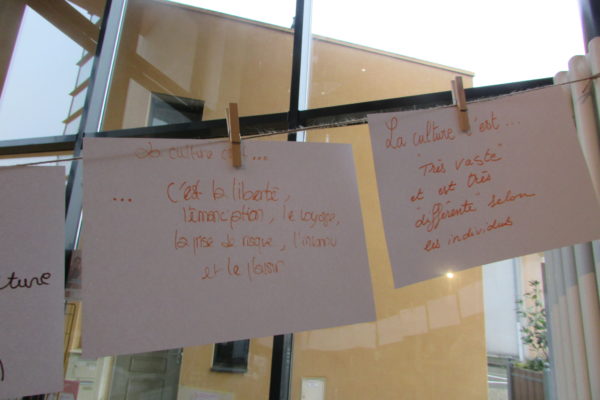 cture
La culture c'est...
... C'est la liberté,
l'émanciption, le voyage,
la prise de risque, l'inconnu
et le plaisir
La culture c'est...
"Très vaste"
et est très
"différente" selon
les individus